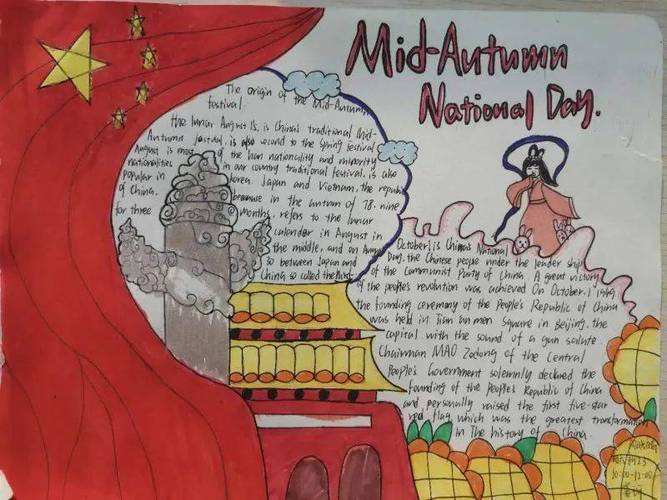 Mid-Autumn
National Day.
The origin of the Mid-Autumn
festival
the lunar August 15, is China's traditional Mid-
Autumn festival, is also second to the Spring Festival
August is most of the Han nationality and minority
nationalities in our country traditional festival. is also
popular in Korea Japan and Vietnam. the republic
of China. because in the autumn of 78. nine
for three months, refers to the lunar
calendar in August in
the middle, and on August
so between Japan and
China so called the
October 1 is China's National
Day. the Chinese people under the leader ship
of the Communist Party of China A great victory
of the people's revolution was achieved On October. 1 1949
the founding ceremony of the People's Republic of China
was held in Tian an men square in Beijing. the
capital with the sound of a gun salute
Chairman MAO Zedong of the Central
People's Government solemnly declared the
founding of the People's Republic of China
and personally raised the first five-star
red flag, which was the greatest transformation
in The history of China